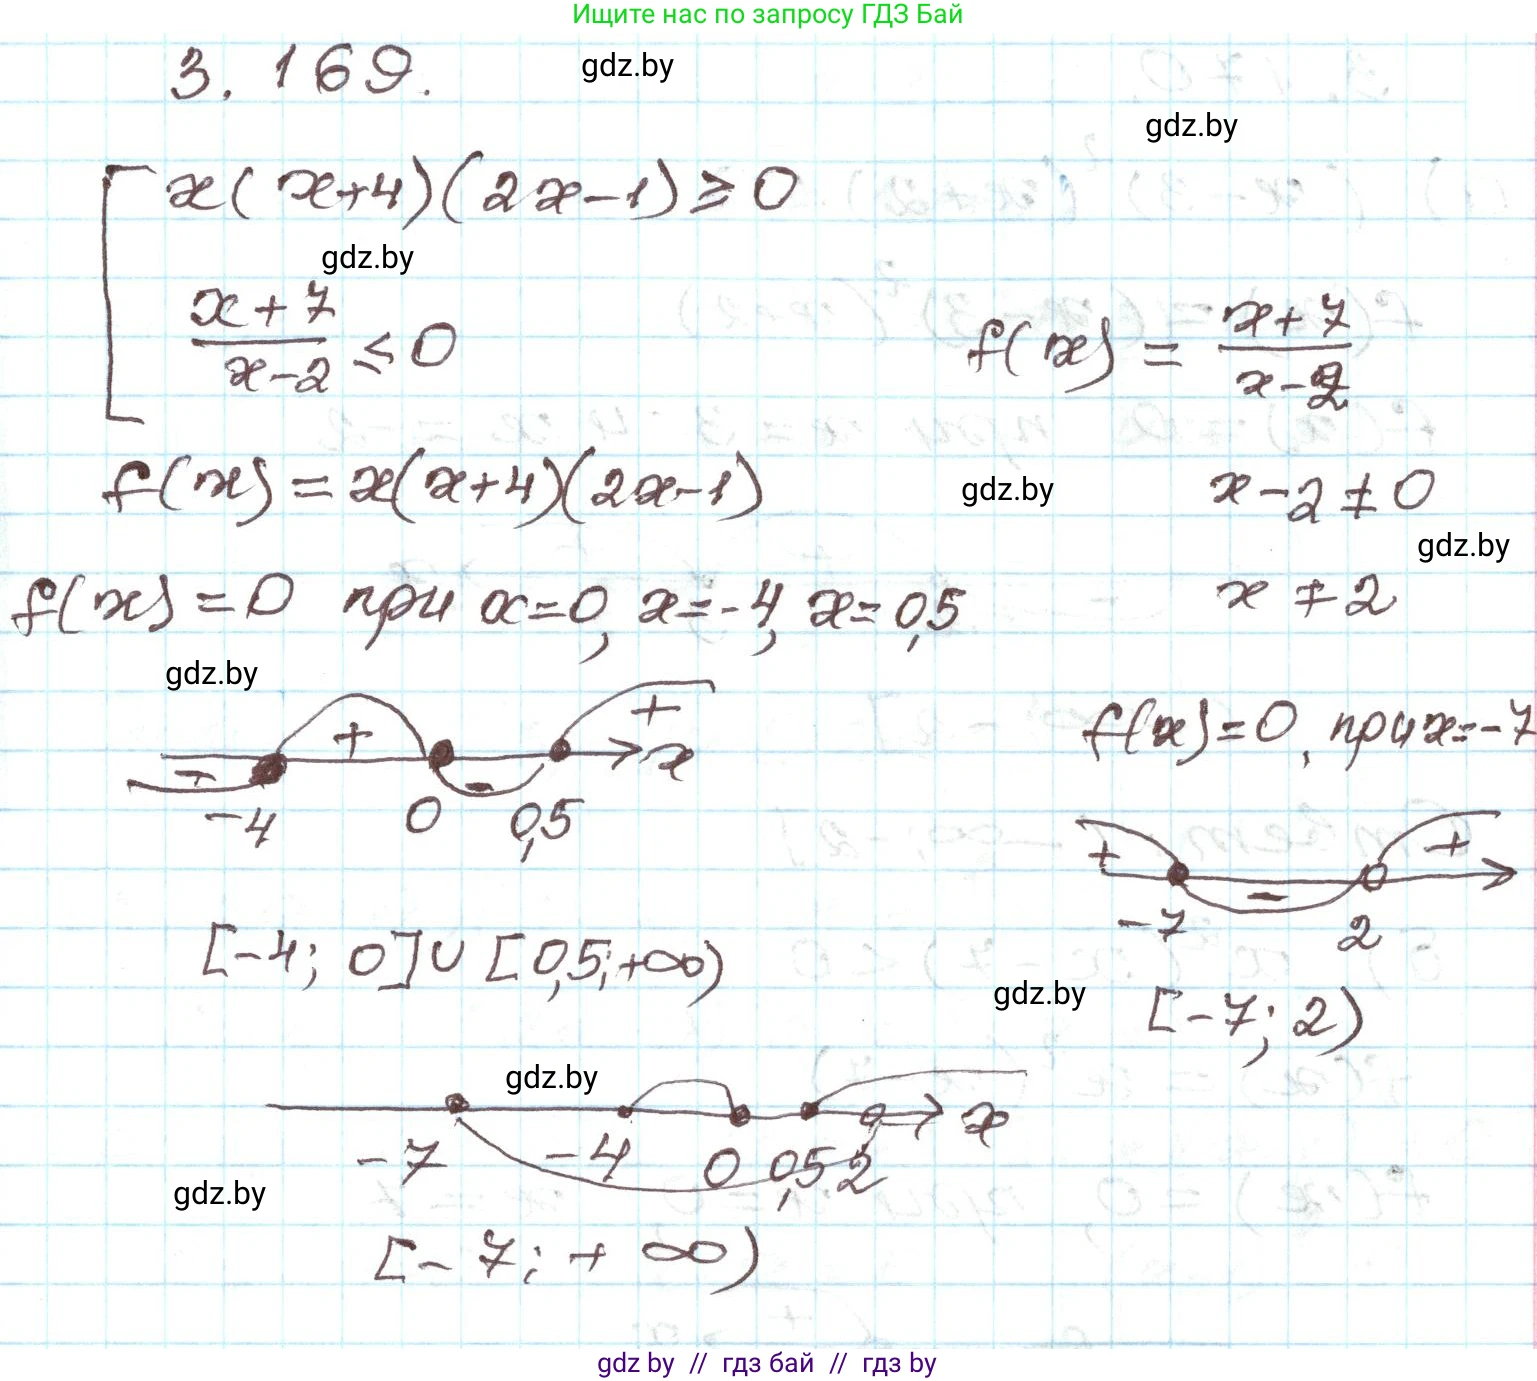 Ищите нас по запросу ГДЗ Бай
3.169.
gdz.by
gdz.by
x(x+4)(2x-1)≥0
gdz.by
x+7
x-2
≤0
f(x) = x+7
x-2
f(x)=x(x+4)(2x-1)
gdz.by
x-2≠0
gdz.by
f(x)=0 при x=0, x=-4, x=0,5
x≠2
gdz.by
+ + x
- -
-4 0 0,5
f(x)=0, при x=-7
+ - +
-7 2
[-4; 0]∪[0,5;+∞)
gdz.by
[-7; 2)
gdz.by
x
-7 -4 0 0,5 2
gdz.by
[-7; +∞)
gdz by // гдз бай // гдз by